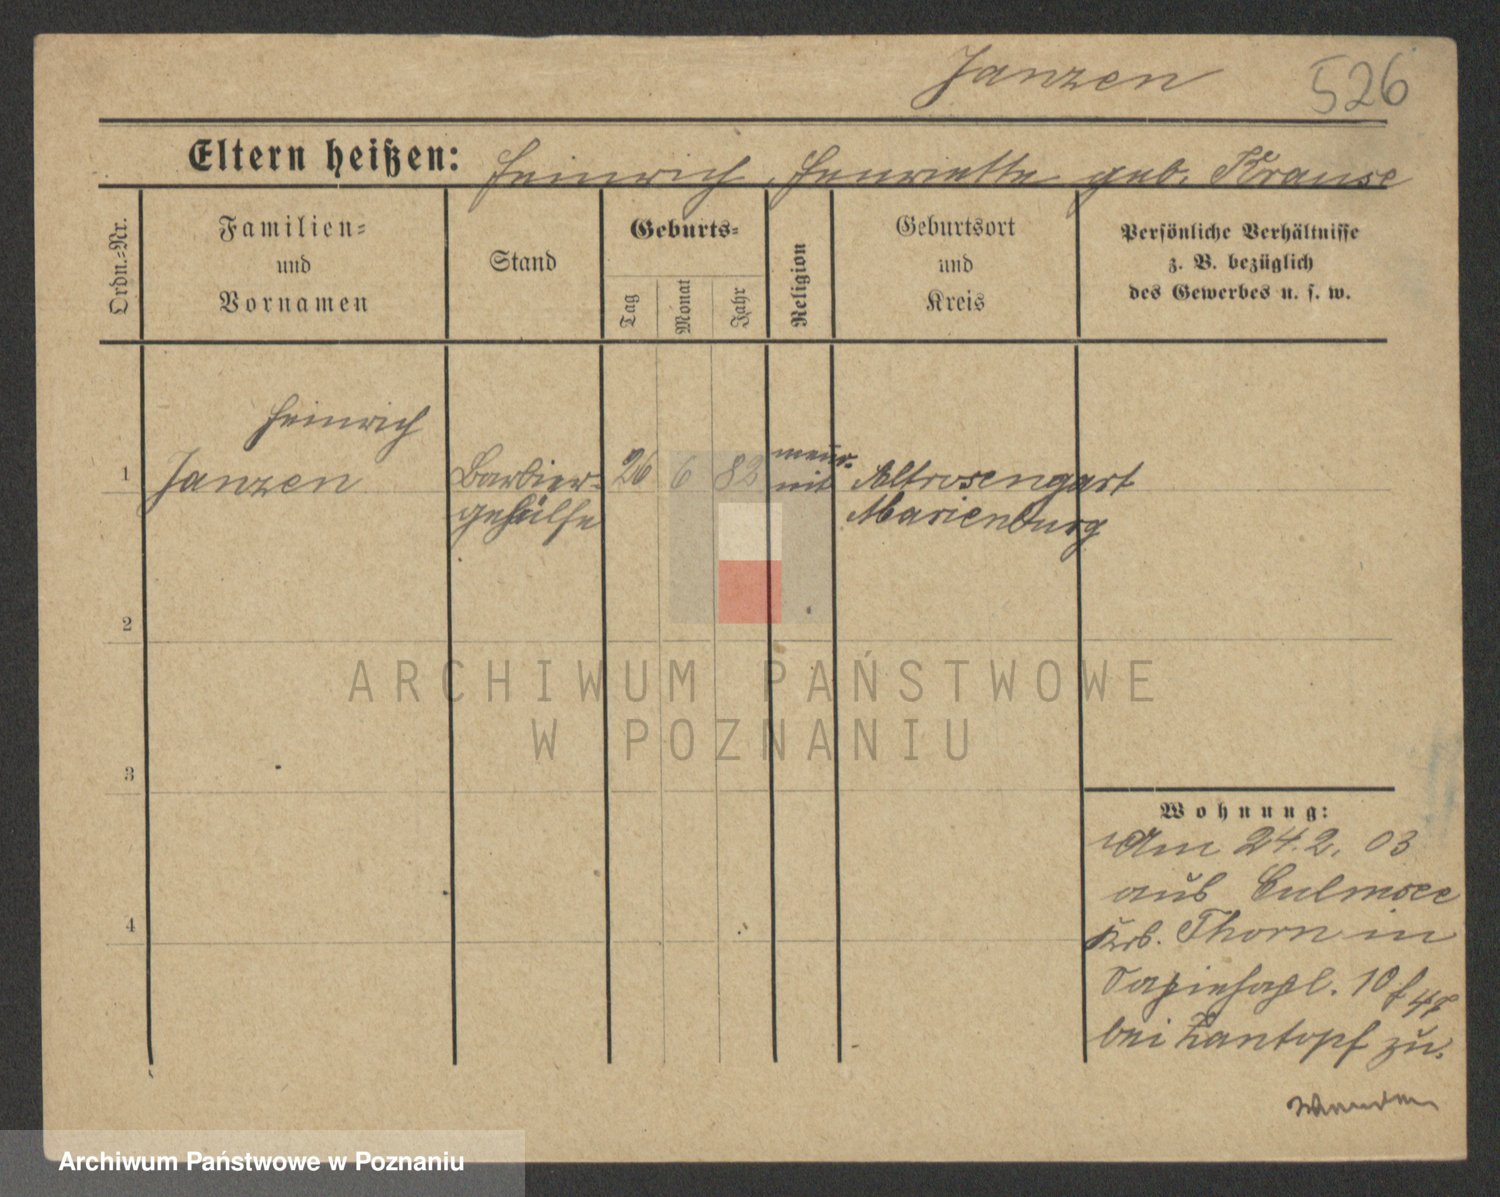 Janzen 526
Eltern heißen: Heinrich, Henriette geb. Krause
Ordn.=Nr.
Familien=
und
Vornamen
Stand
Geburts=
Tag
Monat
Jahr
Religion
Geburtsort
und
Kreis
Persönliche Verhältnisse
z. B. bezüglich
des Gewerbes u. s. w.
Heinrich
1 Janzen Barbier= 26 6 82 menno- nit Altrosengart
gehülfe Marienburg
2
ARCHIWUM PAŃSTWOWE
W POZNANIU
3
Wohnung:
Am 24.2. 03
aus Culmsee
4
Krs. Thorn in
Sapiehapl. 10
bei Zantopf zu.
Wenden
Archiwum Państwowe w Poznaniu